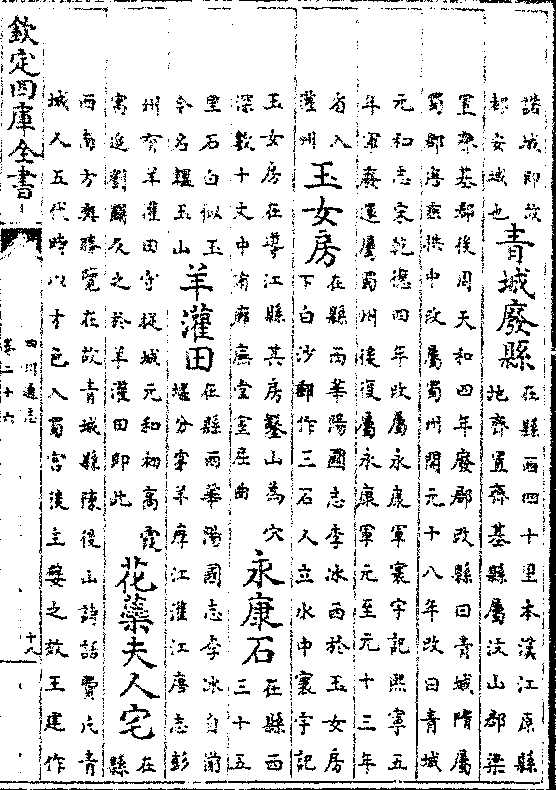 諾城即故
都安城也
青城廢縣
在縣西四十里本漢江原縣
地齊置齊基縣屬汶山郡梁
置齊基郡後周天和四年廢郡改縣曰青城隋屬
蜀郡唐垂拱中改屬蜀州開元十八年改曰青城
元和志宋乾德四年改屬永康軍寰宇記熙寧五
年軍廢還屬蜀州後復屬永康軍元至元十三年
省入
灌州
玉女房
在縣西華陽國志李冰西於玉女房
下白沙郵作三石人立水中寰宇記
玉女房在導江縣其房鑿山為穴
深數十丈中有廊廡堂室屈曲
永康石
在縣西
三十五
里石白似玉
今名韞玉山
羊灌田
在縣西華陽國志李冰自湔
堰分穿羊摩江灌江唐志彭
州有羊灌田守捉城元和初高霞
寓追劉闢及之於羊灌田即此
花蘂夫人宅
在
縣
西南方輿勝覽在故青城縣陳後山詩話費氏青
城人五代時以才色入蜀宮後主嬖之效王建作
欽定四庫全書
四川通志
卷二十六
十八